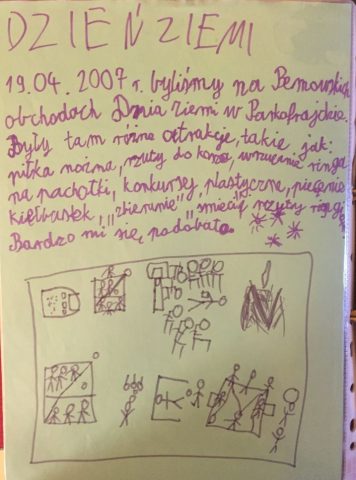 DZIEŃ ZIEMI
19.04.2007 r. byliśmy na Bemowskich
obchodach Dnia ziemi w Parkofrajdzie.
Były tam różne atrakcje, takie jak:
piłka nożna, rzuty do kosza, wrzucanie ringa
na pachołki, konkursy, plastyczne, pieczenie
kiełbasek, „zbieranie” śmieci, rzuty
Bardzo mi się podobało.